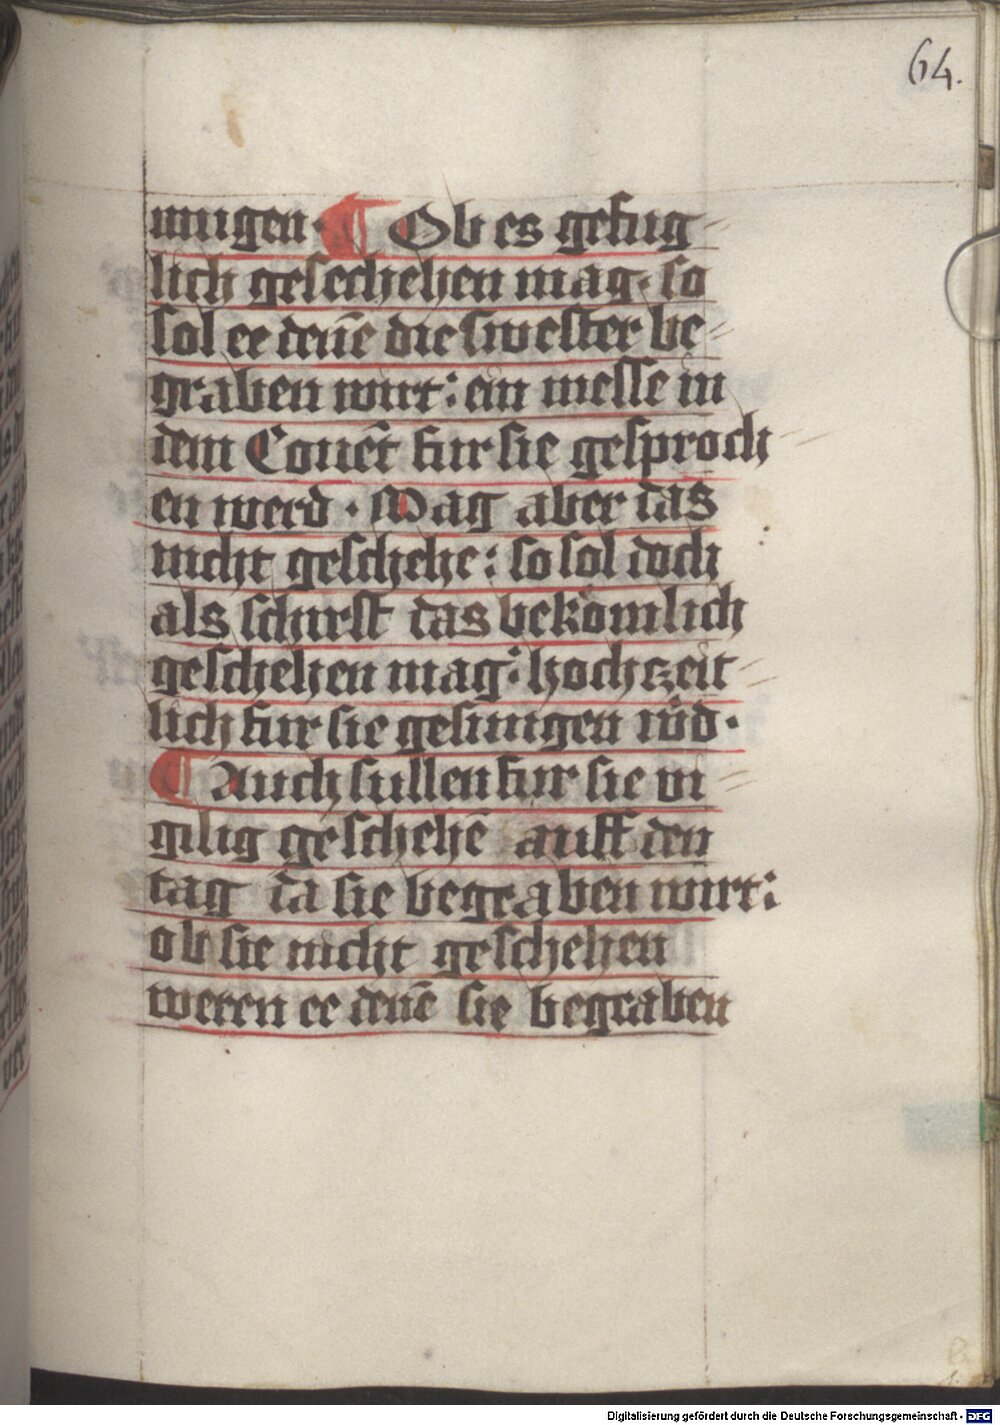 64.
mugen. ¶ Ob es gefug
lich gesechehen mag. so
sol ee denē die swester be
graben wurt: ein messe in
dem Couēt fur sie gesproch
en werd. Mag aber das
nicht geschehe: so sol doch
als schirst das bekomlich
geschehen mag: hochczeit
lich fur sie gesungen wīrd.
¶ Auch sullen fur sie vi
gilig geschehē auff den
tag da sie begraben wurt:
ob sie nicht geschehen
weren ee denē sie begraben
Digitalisierung gefördert durch die Deutsche Forschungsgemeinschaft - DFG